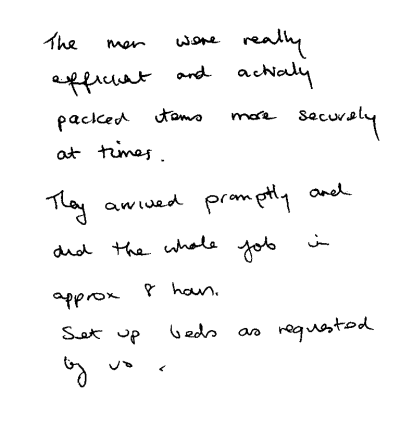 The men were really
efficient and actually
packed items more securely
at times.
They arrived promptly and
did the whole job in
approx 8 hours.
Set up beds as requested
by us.